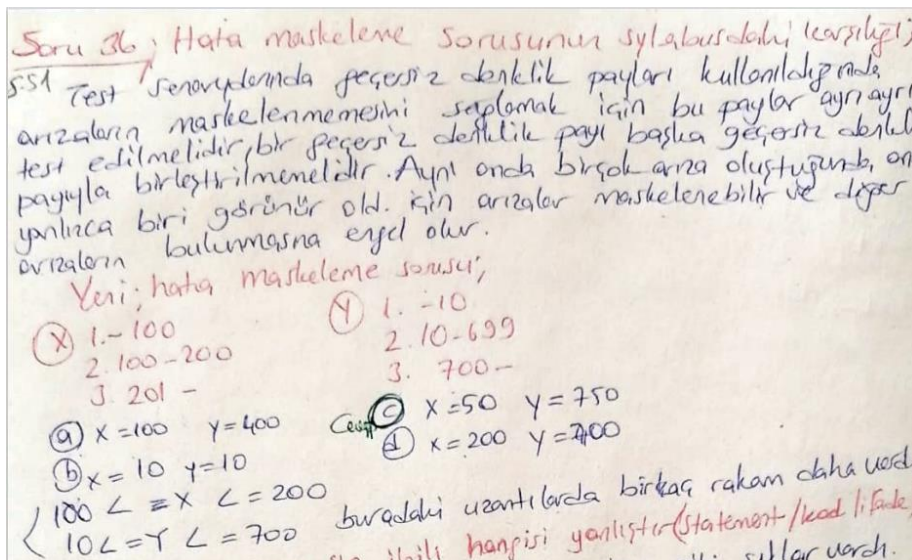 Soru 36; Hata maskeleme sorusunun sylabusdaki karşılığı;
S.51 Test senaryolarında geçersiz denklik payları kullanıldığında,
arızaların maskelenmemesini sağlamak için bu paylar ayrı ayrı
test edilmelidir, bir geçersiz denklik payı başka geçersiz denkli
payıyla birleştirilmemelidir. Aynı anda birçok arıza oluştuğunda, an
yanlızca biri görünür old. için arızalar maskelenebilir ve diğer
arızaların bulunmasına engel olur.
Yeni; hata maskeleme sorusu;
X 1. - 100
2. 100-200
3. 201 -
Y 1. -10
2. 10-699
3. 700-
a x=100 y=400
b x=10 y=10
Cevap c x=50 y=750
d x=200 y=400
100 < =x < =200
10 < =Y < =700
buradaki uzantılarda birkaç rakam daha vard
ilgili hangisi yanlıştır (statement/kod lifade
şıklar vardı.